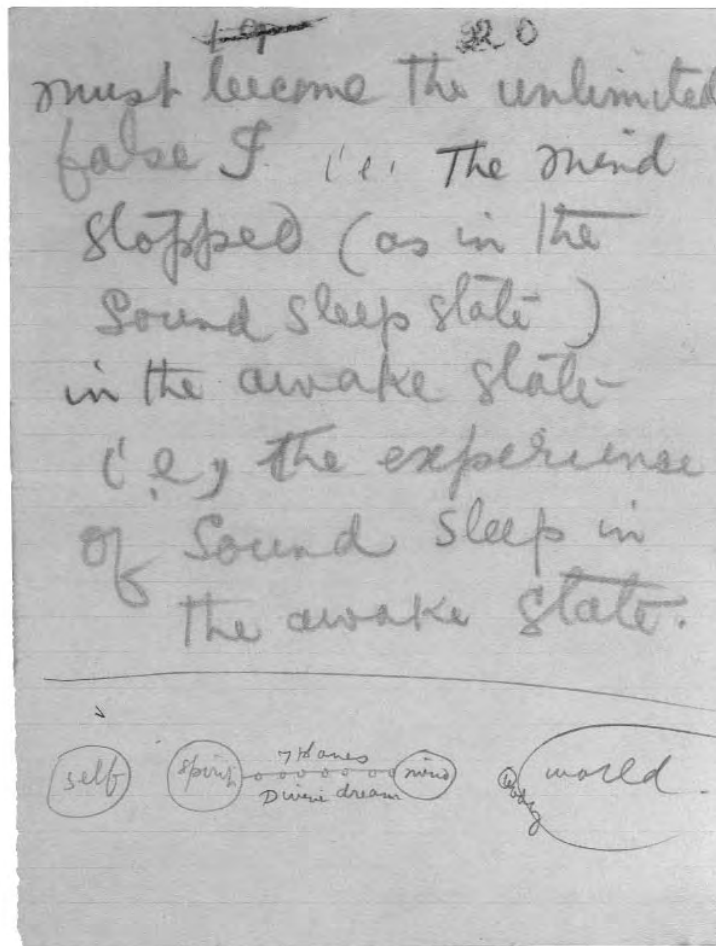 220
must become the unlimited
false I i.e. The mind
stopped (as in the
Sound sleep state)
in the awake state
i.e, the experience
of Sound sleep in
the awake state.
self spirit 7 Planes mind world.
Divine dream body